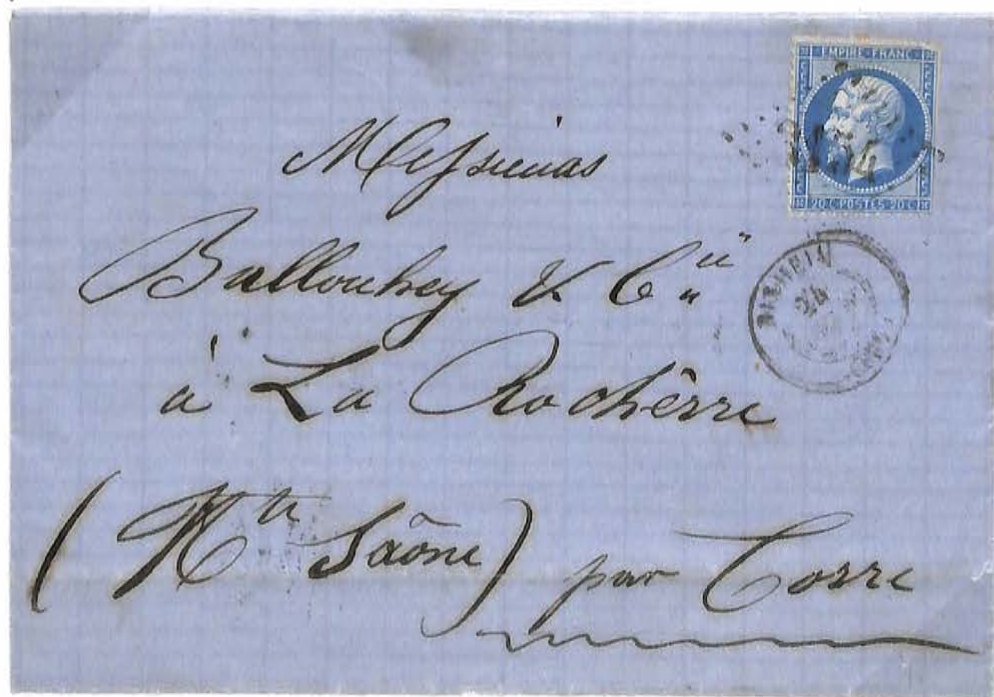 EMPIRE FRANC
20 C POSTES 20 C
Messieurs
Ballouhey & Cie
à La Rochêrre
24
(Hte Saône) par Corre